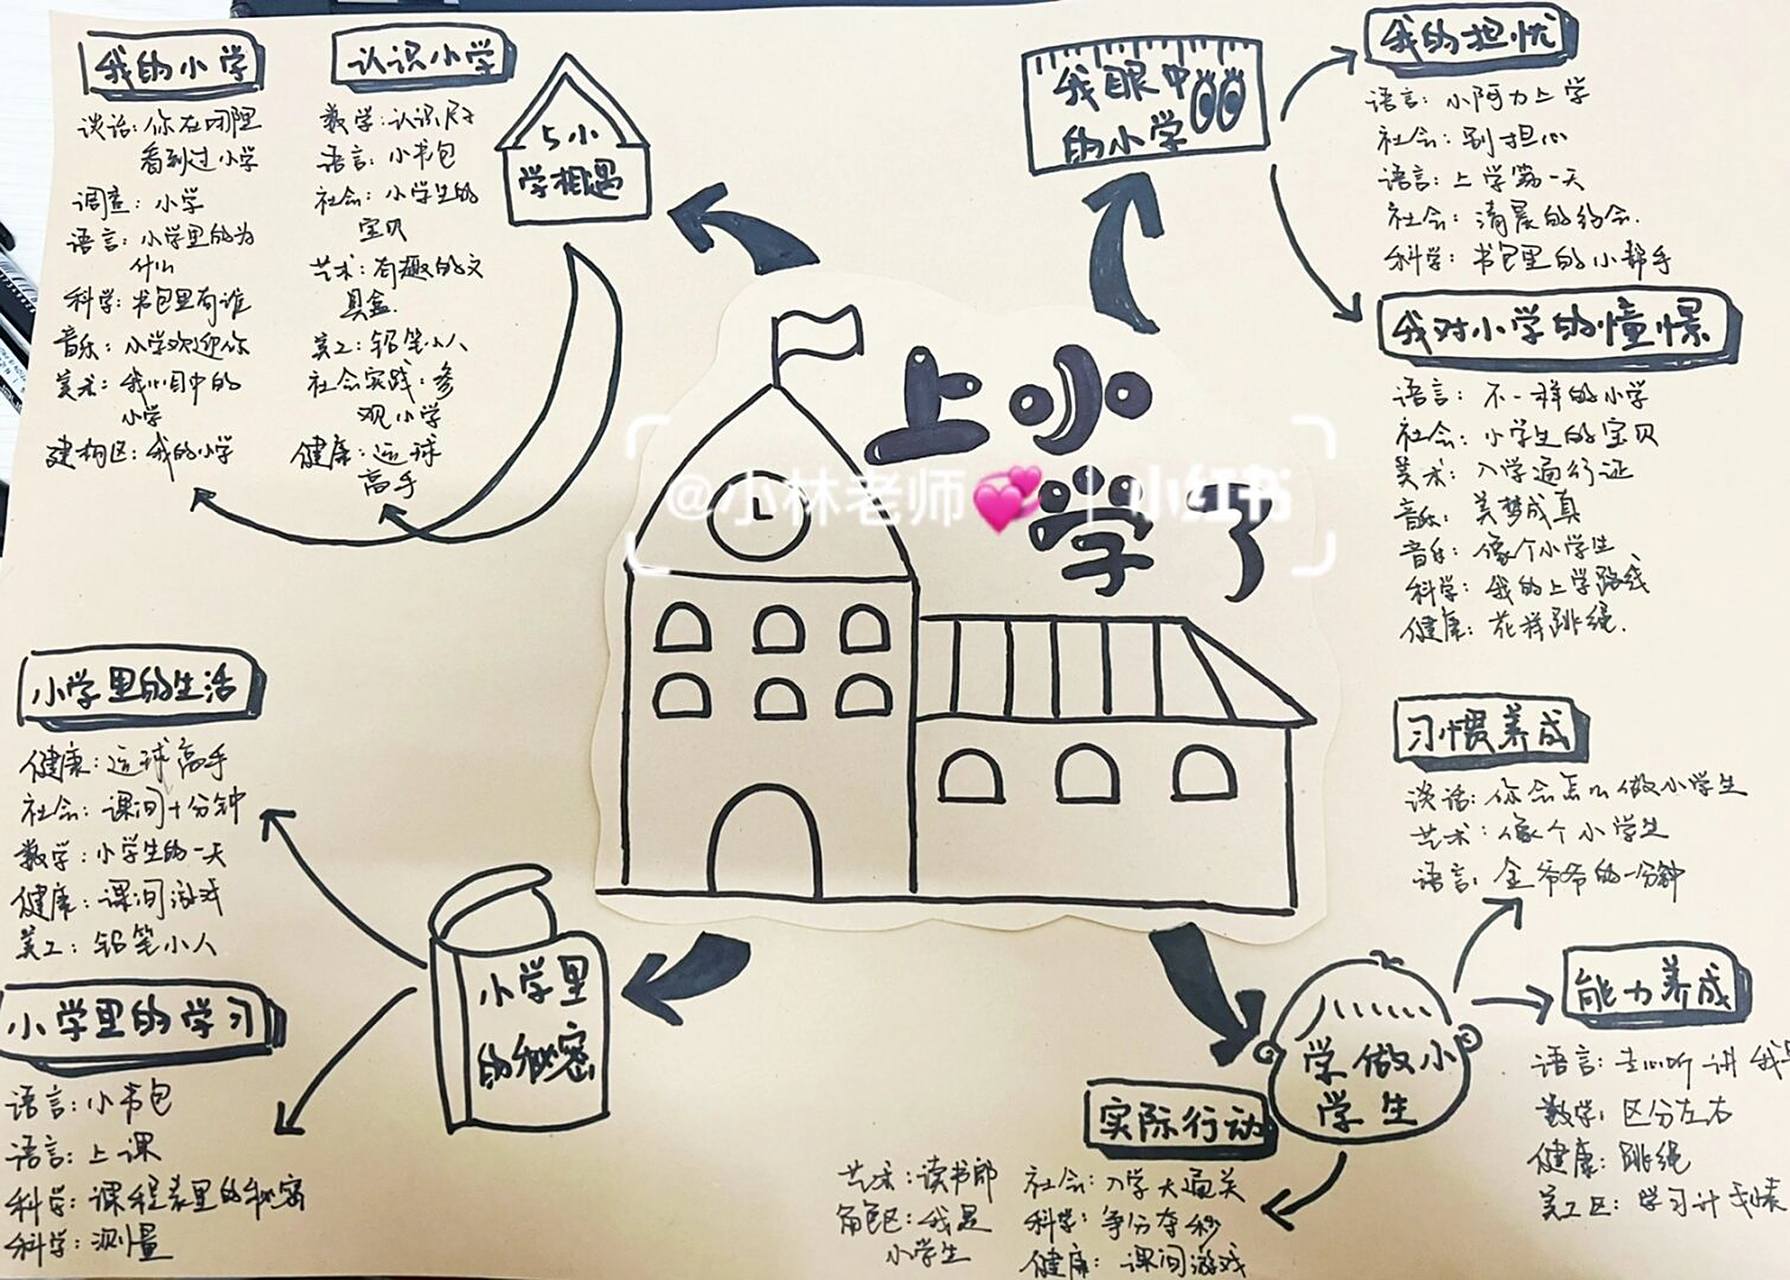 我的小学
谈话:你在哪里
看到过小学
调查:小学
语言:小学里的为
什么
科学:书包里有谁
音乐:小学欢迎你
美术:我心目中的
小学
建构区:我的小学
认识小学
数学:认识尺子
语言:小书包
社会:小学生的
宝贝
艺术:有趣的文
具盒
美工:铅笔小人
社会实践:参
观小学
健康:运球
高手
与小
学相遇
我眼中
的小学
我的担忧
语言:小阿力上学
社会:别担心
语言:上学第一天
社会:清晨的约会.
科学:书包里的小帮手
我对小学的憧憬
语言:不一样的小学
社会:小学生的宝贝
美术:入学通行证
音乐:美梦成真
音乐:像个小学生
科学:我的上学路线
健康:花样跳绳.
上小
学了
@小林老师💞 | 小红书
小学里的生活
健康:运球高手
社会:课间十分钟
数学:小学生的一天
健康:课间游戏
美工:铅笔小人
小学里的学习
语言:小书包
语言:上课
科学:课程表里的秘密
科学:测量
小学里
的秘密
习惯养成
谈话:你会怎么做小学生
艺术:像个小学生
语言:金爷爷的一分钟
能力养成
数学:区分左右
健康:跳绳
美工区:学习计划表
学做小
学生
实际行动
艺术:读书郎
角色区:我是
小学生
社会:入学大通关
科学:争分夺秒
健康:课间游戏